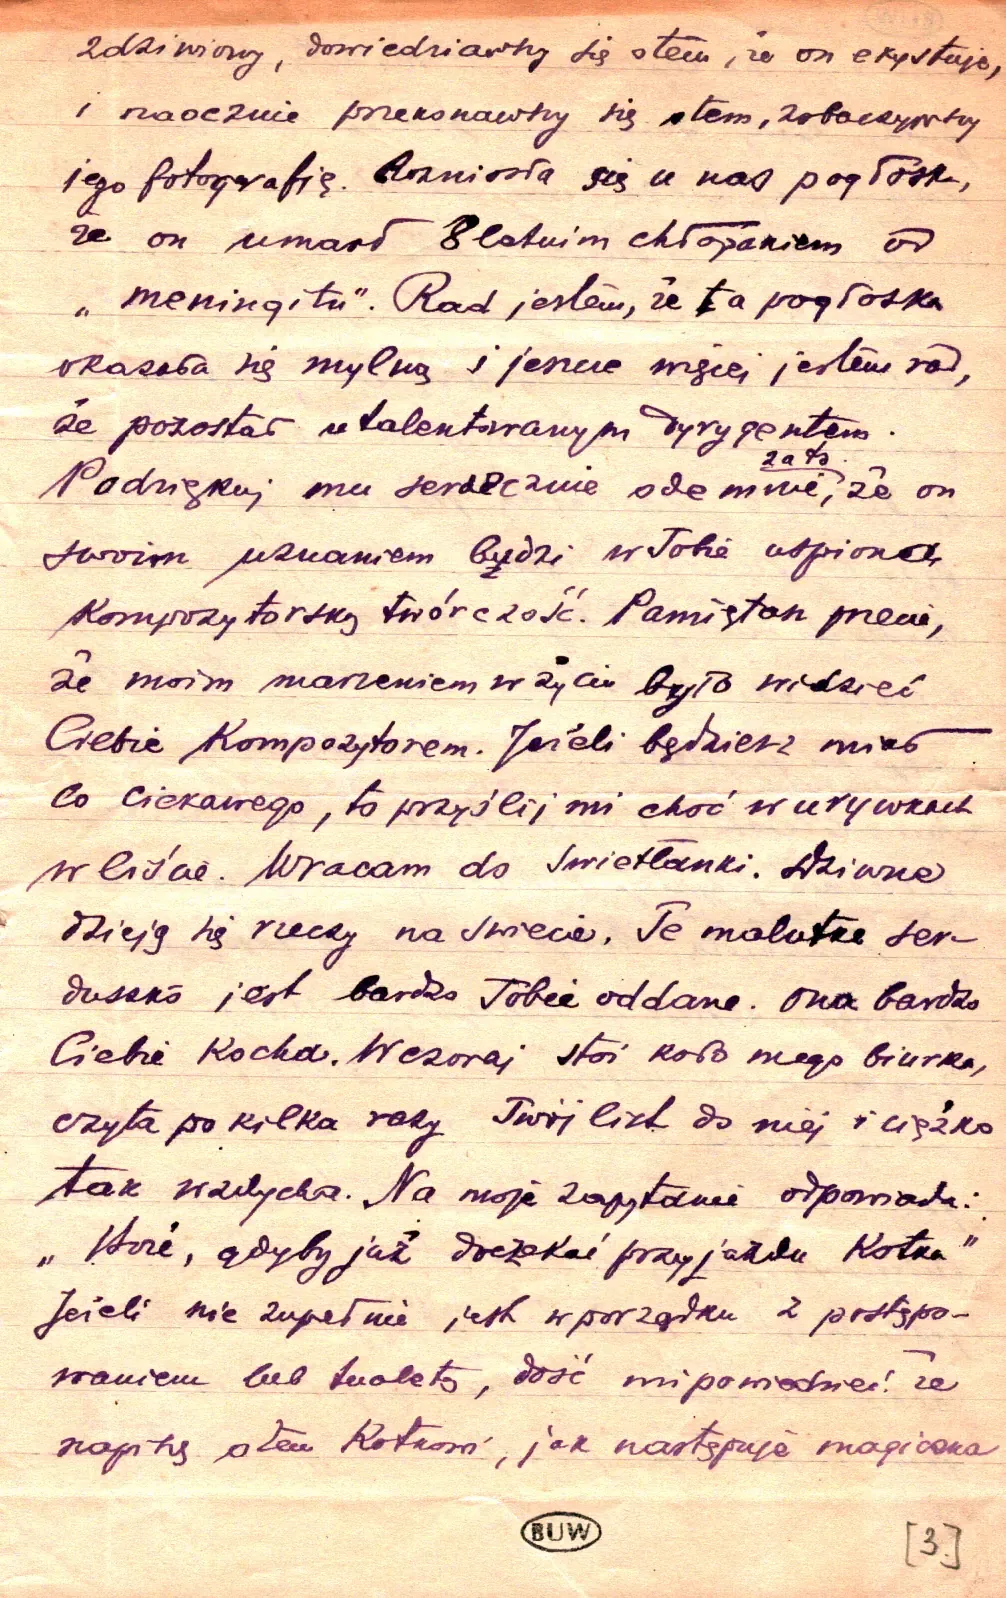 zdziwiony, dowiedziawszy się o tém, że on ekystuje,
i naocznie przekonawszy się o tem, zobaczywszy
jego fotografię. Rozniosła się u nas pogłoska,
że on umarł 8 letnim chłopakiem od
„meningitu". Rad jestém, że ta pogłoska
okazała się mylną i jeszcze więcej jestém rad,
że pozostał utalentowanym dyrygentem.
za to
Podziękuj mu serdecznie odemnie, że on
swoim uznaniem budzi w Tobie uspioną
kompozytorską twórczość. Pamiętam przecie,
że moim marzeniem w życiu było widzieć
Ciebie Kompozytorem. Jeśeli będziesz miał
co ciekawego, to przyślij mi choć w urywkach
w liście. Wracam do Swietłanki. Dziwne
dzieją się rzeczy na swiecie. Te malutkie ser-
duszko jest bardzo Tobie oddane. Ona bardzo
Ciebie Kocha. Wczoraj stoi koło mego biurka,
czyta po kilka razy Twój list do niej i ciężko
tak wzdycha. Na moje zapytanie odpowiada:
„Boże, gdyby już doczekać przyjazdu Kotka"
Jeśeli nie zupełnie jest w porządku z postępo-
waniem lub tualetą, dość mi powiedzieć że
napiszę o tém Kotkowi, jak następuje magiczna
BUW
[3]